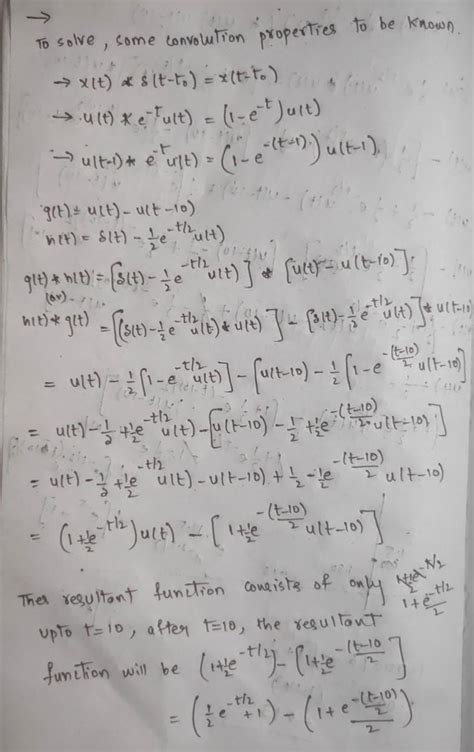 →
To solve, some convolution properties to be known.
→ x(t) * δ(t-t₀) = x(t-t₀)
→ u(t) * e^{-t}u(t) = (1-e^{-t})u(t)
→ u(t-1) * e^{-t}u(t) = (1-e^{-(t-1)})u(t-1)
g(t) = u(t) - u(t-10)
h(t) = δ(t) - 1/2 e^{-t/2} u(t)
g(t) * h(t) = [δ(t) - 1/2 e^{-t/2} u(t)] * [u(t) - u(t-10)]
(or)
h(t) * g(t) = [(δ(t) - 1/2 e^{-t/2} u(t)) * u(t)] - [δ(t) - 1/2 e^{-t/2} u(t)] * u(t-10)
= u(t) - 1/2 [1-e^{-t/2} u(t)] - [u(t-10) - 1/2 [1-e^{-(t-10)/2} u(t-10)]
= u(t) - 1/2 + 1/2 e^{-t/2} u(t) - [u(t-10) - 1/2 + 1/2 e^{-(t-10)/2} u(t-10)]
= u(t) - 1/2 + 1/2 e^{-t/2} u(t) - u(t-10) + 1/2 - 1/2 e^{-(t-10)/2} u(t-10)
= (1 + 1/2 e^{-t/2}) u(t) - [1 + 1/2 e^{-(t-10)/2} u(t-10)]
Ther resultant function consists of only 1 + e^{-t/2}/2
upto t=10, after t=10, the resultant
function will be (1 + 1/2 e^{-t/2}) - [1 + 1/2 e^{-(t-10)/2}]
= (1/2 e^{-t/2} + 1) - (1 + e^{-(t-10)/2}/2)